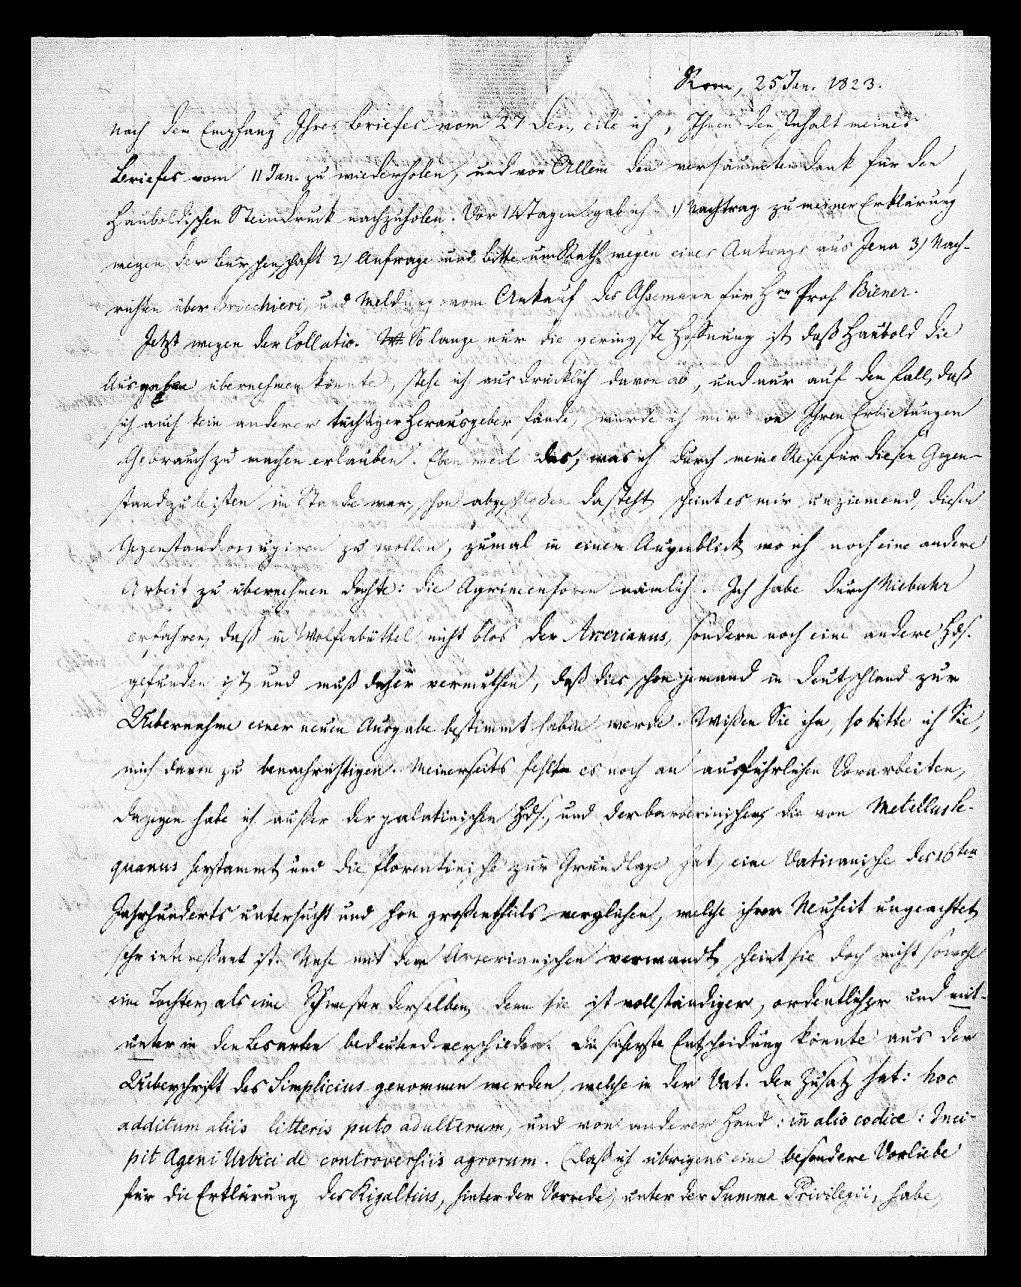 Rom, 25 Jan. 1823.
Nach dem Empfang Ihres Briefes vom 27 Dec, eile ich, Ihnen den Inhalt meines
Briefes vom 11 Jan. zu wiederholen, und vor Allem den versäumten Dank für den
Hauboldischen Steindruck nachzuholen. Vor 14 Tagen gab ich 1) Nachtrag zu meiner Erklärung
wegen der Burschenschaft 2) Anfrage und Bitte um Rath wegen eines Antrags aus Jena 3) Nach-
richten über Brocchieri, und Meldung vom Ankauf des Assemann für Hrn Prof Biener.
Jetzt wegen der Collatio. So lange nur die geringste Hoffnung ist, daß Haubold die
Ausgabe übernehmen könnte, stehe ich ausdrücklich davon ab, und nur auf den Fall, daß
sich auch kein anderer tüchtiger Herausgeber fände, würde ich mir von Ihren Erbietungen
Gebrauch zu machen erlauben. Eben weil das, was ich durch meine Reise für diesen Gegen-
stand zu leisten im Stande war, schon abgeschlossen dasteht, scheint es mir unziemend, diesen
Gegenstand zu wollen, zumal in einem Augenblick, wo ich noch eine andere
Arbeit zu übernehmen dächte: die Agrimensoren nämlich. Ich habe durch Niebuhr
erfahren, daß in Wolfenbüttel nicht blos der Arcerianus, sondern noch eine andere Hds.
gefunden ist, und muß daher vermuthen, daß dies schon jemand in Deutschland zur
Uebernahme einer neuen Ausgabe bestimmt haben werde. Wißen Sie ihn, so bitte ich Sie,
mich davon zu benachrichtigen. Meinerseits fehlte es noch an ausführlichen Vorarbeiten,
dagegen habe ich außer der palatinischen Hds., und der barberinischen, die von Metellus Se-
quanus herstammt und die florentinische zur Grundlage hat, eine Vaticanische des 16ten
Jahrhunderts untersucht und schon großentheils verglichen, welche ihrer Neuheit ungeachtet
sehr interessant ist. Nahe mit dem Arcerianischen verwandt, scheint sie doch nicht sowohl
eine Tochter, als eine Schwester derselben, denn sie ist vollständiger, ordentlicher und mit-
unter in den Lesarten bedeutend verschieden. Die sicherste Entscheidung könnte aus der
Ueberschrift des Simplicius genommen werden, welche in der Vat. den Zusatz hat: hoc
additum aliis litteris puto adulterum, und von anderer Hand: in alio codice: Inci-
pit Ageni Urbici de controversiis agrorum. Daß ich übrigens eine besondere Vorliebe
für die Erklärung des Rigaltius, hinter der Vorrede, unter der Summa Privilegii, habe,